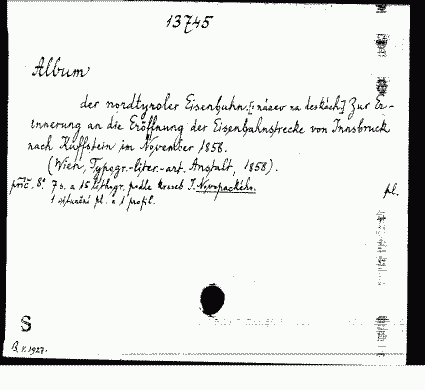 13745
Album
der nordtyroler Eisenbahn. [: název na deskách.] Zur Er-
innerung an die Eröffnung der Eisenbahnstrecke von Innsbruck
nach Kuffstein im November 1858.
(Wien, Typogr.-liter.-art. Anstalt, 1858).
příč. 8° 7 s. a 15 lithogr. podle kreseb J. Novopackého. pl.
1 situační pl. a 1 profil.
S
1927.